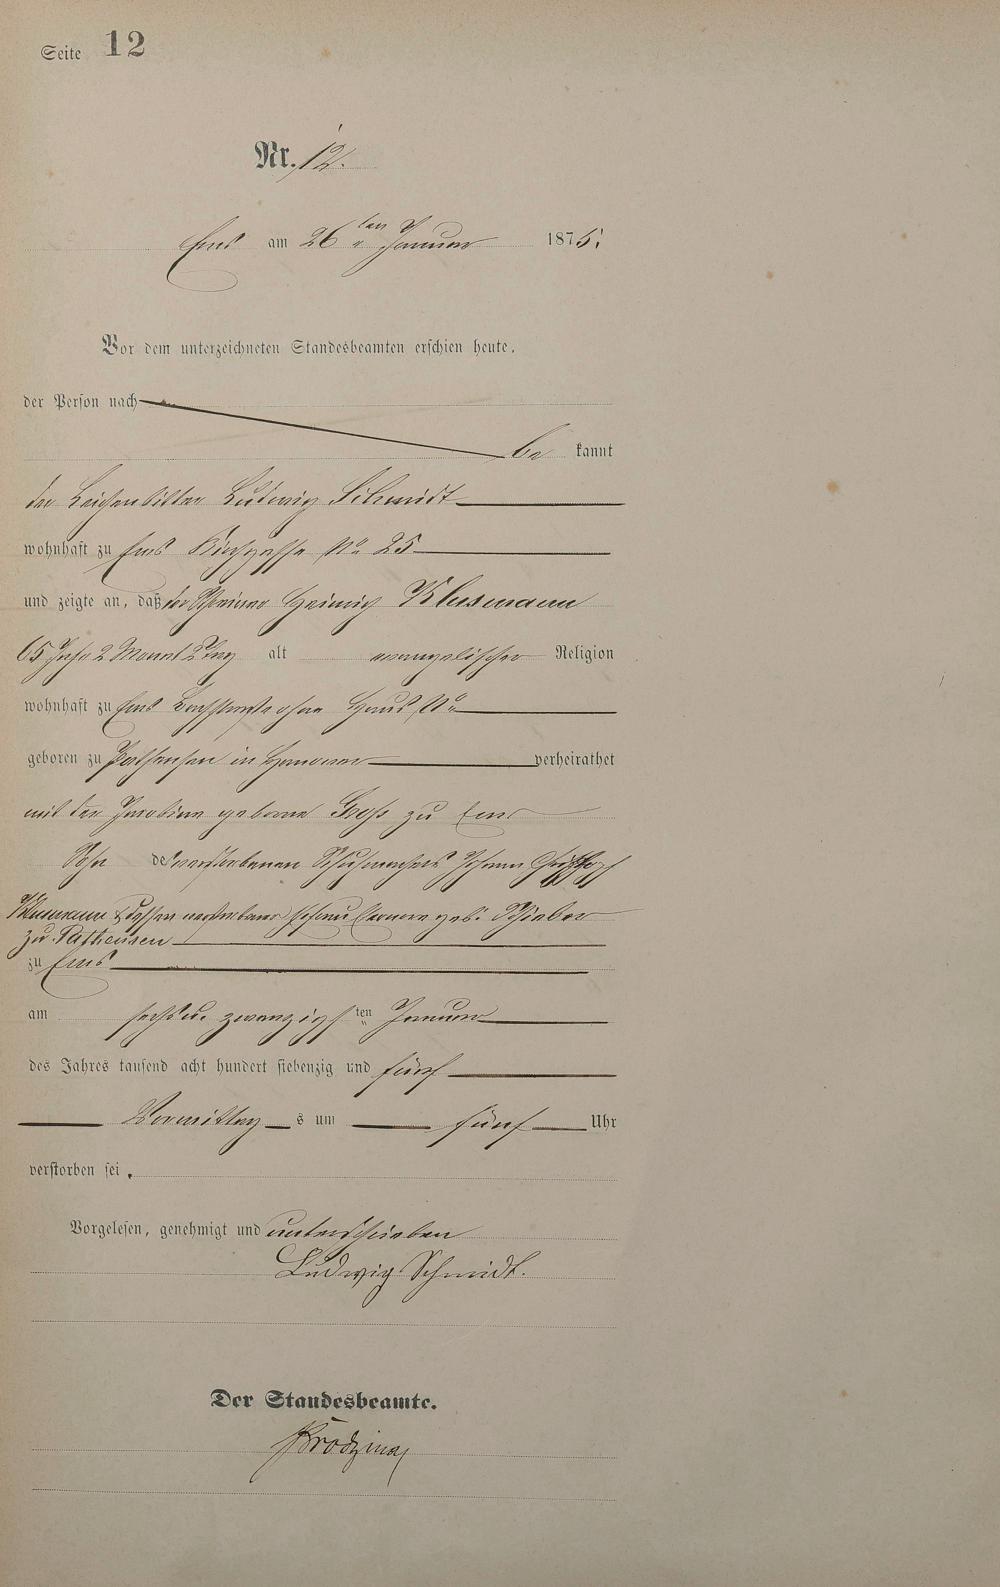 Seite 12
Nr. 12.
Ems am 26 ten Januar 1875.
Vor dem unterzeichneten Standesbeamten erschien heute,
der Person nach
be kannt
der Leichenbitter Ludwig Schmidt
wohnhaft zu Ems Kirchgasse No 25
und zeigte an, daß der Schreiner Heinrich Klusmann
65 Jahr 2 Monat 2 Tag alt evangelischer Religion
wohnhaft zu Ems Bachstraße ohne Haus No
geboren zu Pathensen in Hannover verheirathet
mit der Jacobine geborne Groß zu Ems
Sohn des verstorbenen Schuhmachers Johann Christoph
Klusmann & dessen verstorbene Ehefrau geb.
zu Pathensen
zu Ems
am sechs u. zwanzigsten Januar
des Jahres tausend acht hundert siebenzig und fünf
Vormittag s um fünf Uhr
verstorben sei.
Vorgelesen, genehmigt und unterschrieben
Ludwig Schmidt.
Der Standesbeamte.